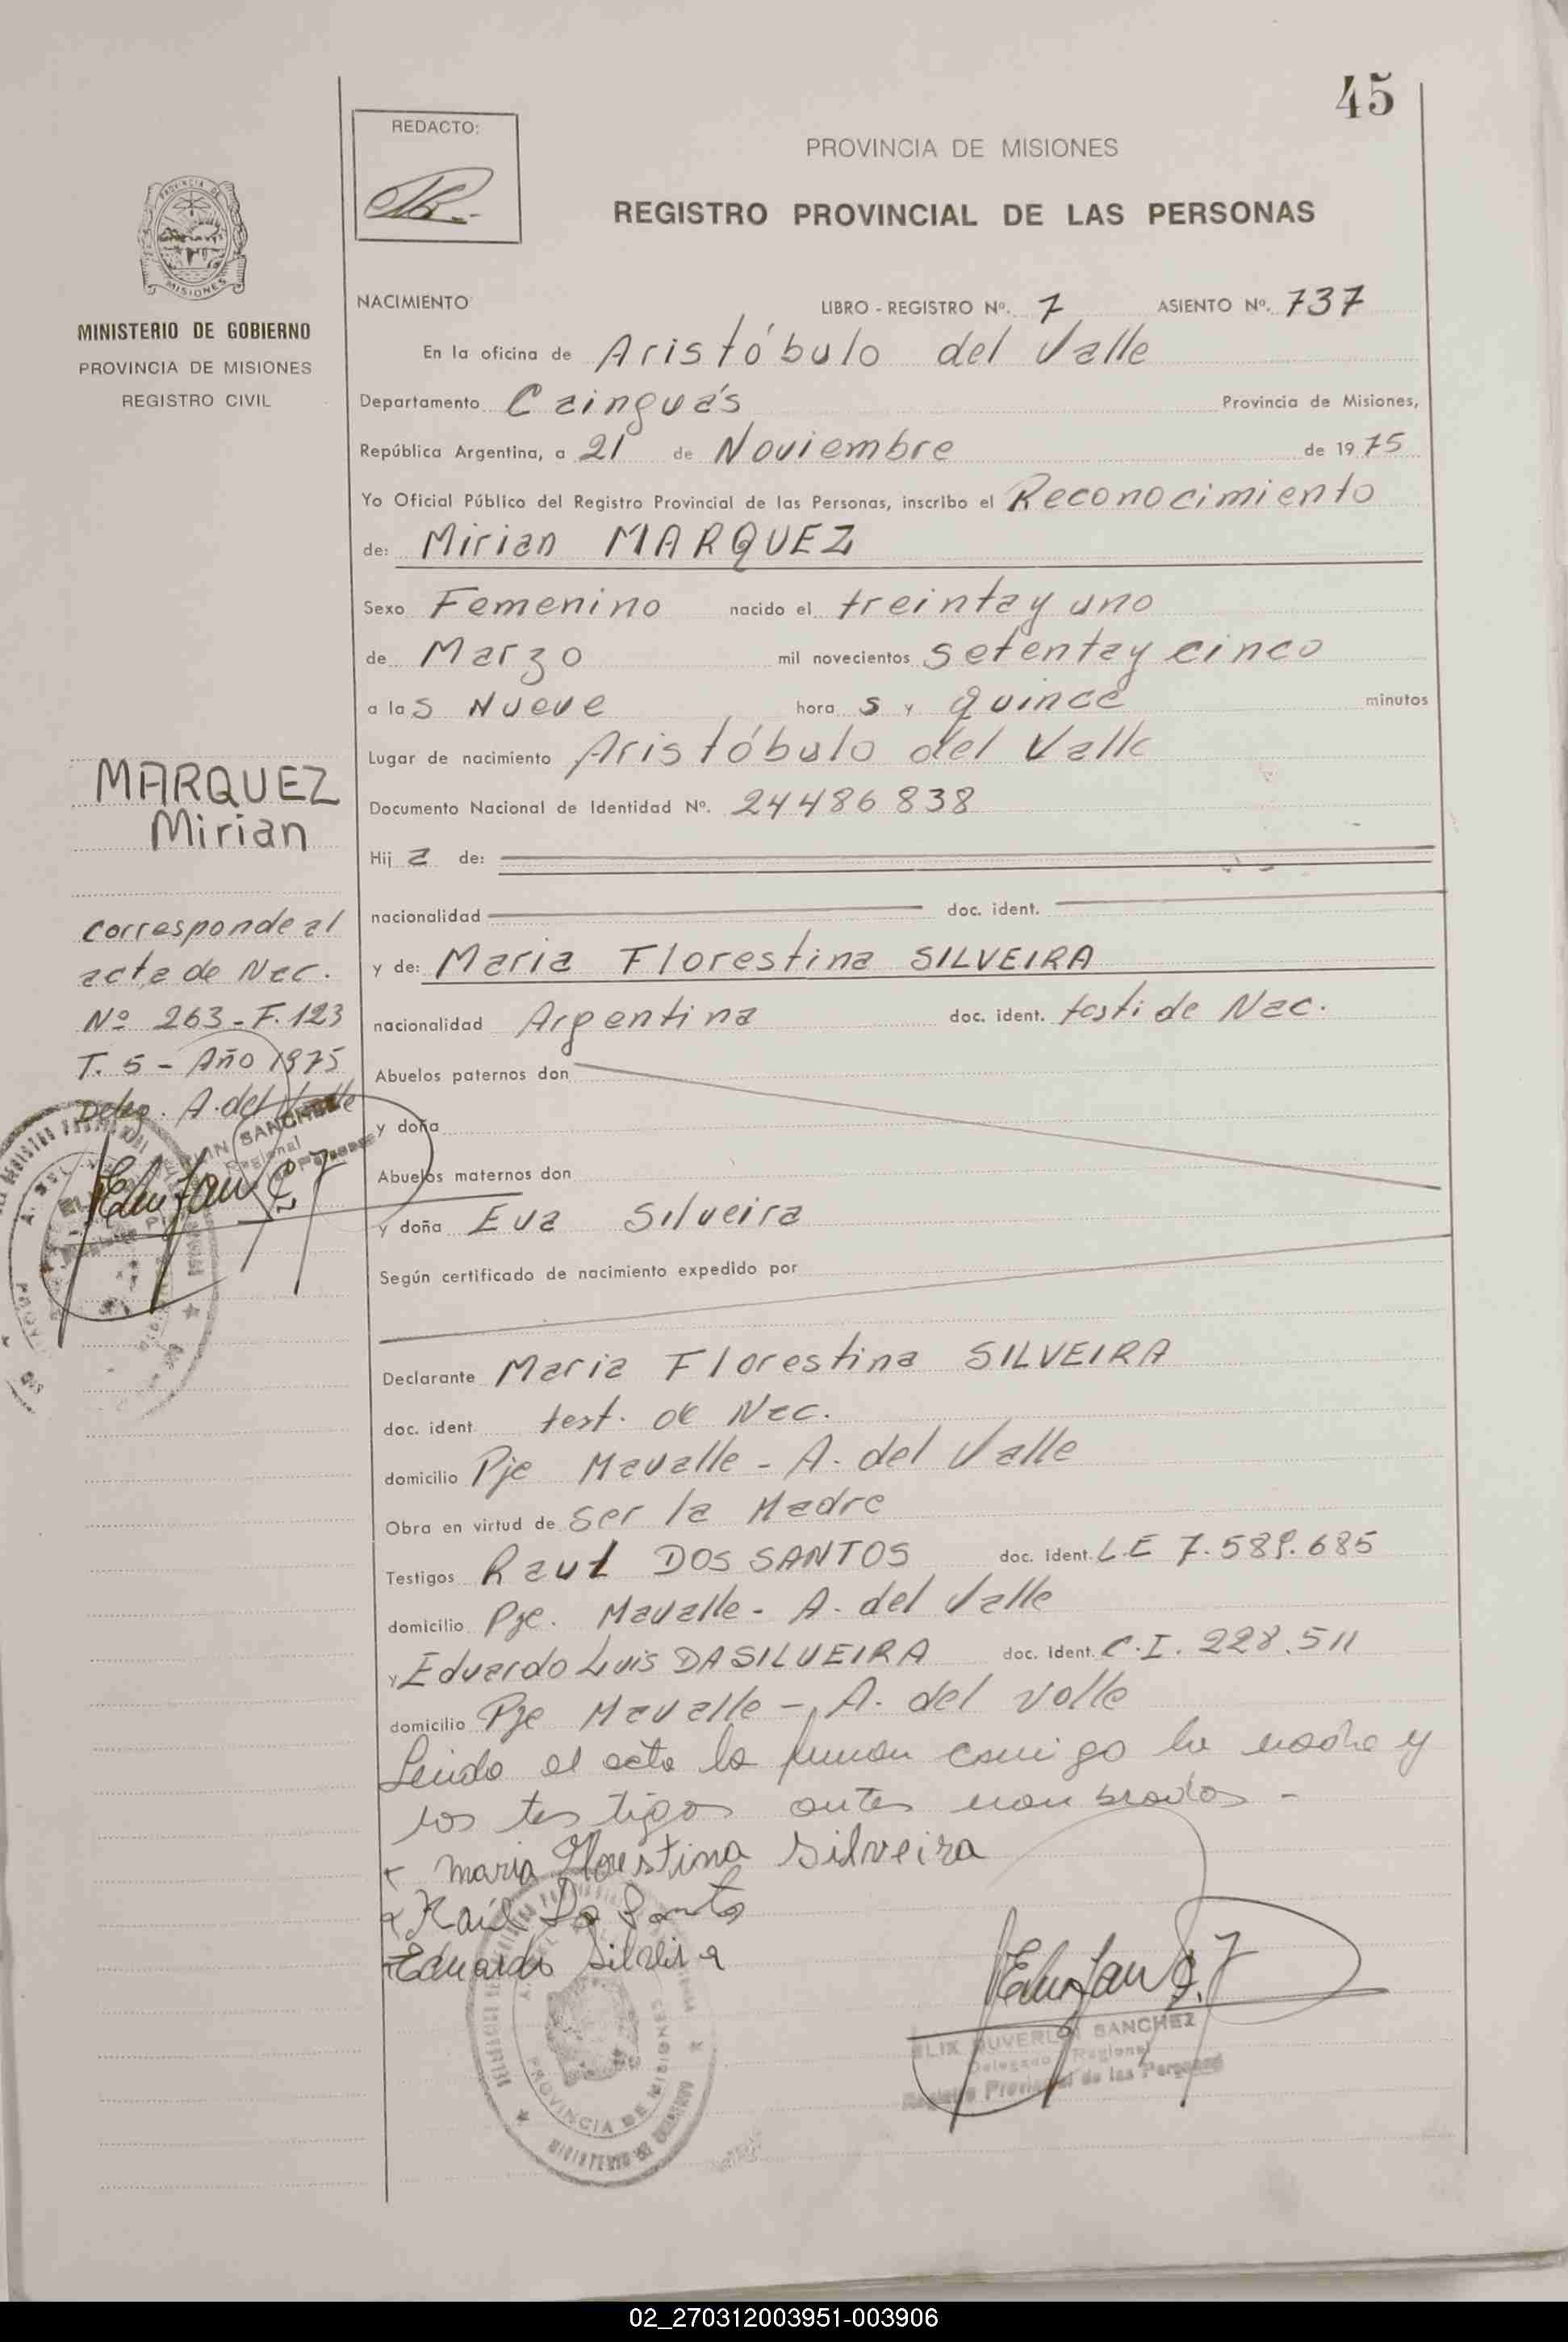 45
REDACTO:
PROVINCIA DE MISIONES
REGISTRO PROVINCIAL DE LAS PERSONAS
PROVINCIA DE
MISIONES
MINISTERIO DE GOBIERNO
PROVINCIA DE MISIONES
REGISTRO CIVIL
NACIMIENTO LIBRO - REGISTRO Nº. 7 ASIENTO Nº. 737
En la oficina de Aristóbulo del Valle
Departamento Cainguás Provincia de Misiones,
República Argentina, a 21 de Noviembre de 1975
Yo Oficial Público del Registro Provincial de las Personas, inscribo el Reconocimiento
de: Mirian MARQUEZ
Sexo Femenino nacido el treinta y uno
de Marzo mil novecientos setenta y cinco
a las Nueve hora s y quince minutos
Lugar de nacimiento Aristóbulo del Valle
Documento Nacional de Identidad Nº. 24486838
Hij a de:
nacionalidad doc. ident.
y de: Maria Florestina SILVEIRA
nacionalidad Argentina doc. ident. testi de Nac.
Abuelos paternos don
y doña
Abuelos maternos don
y doña Eva Silveira
Según certificado de nacimiento expedido por
Declarante Maria Florestina SILVEIRA
doc. ident. test. de Nac.
domicilio Pje Mavalle - A. del Valle
Obra en virtud de ser la Madre
Testigos Raul DOS SANTOS doc. ident. L.E 7.589.685
domicilio Pje. Mavalle - A. del Valle
y Eduardo Luis DASILVEIRA doc. Ident. C.I. 228.511
domicilio Pje Mavalle - A. del Valle
Leida el acta la firman conmigo la madre y
los testigos antes nombrados -
Maria Florestina Silveira
Raúl Do Santos
Eduardo Silveira
MARQUEZ
Mirian
Corresponde al
acta de Nac.
Nº 263 - F. 123
T. 5 - Año 1975
Deleg. A. del Valle
SANCHEZ
Regional
PROVINCIA DE MISIONES
MINISTERIO DE GOBIERNO
ELIX DUVERLIN SANCHEZ
Delegado Regional
Registro Provincial de las Personas
02_270312003951-003906